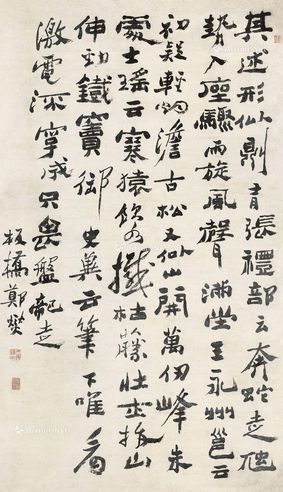 其述形似則有張禮部云奔蛇走虺
勢入座驟雨旋風聲滿坐王永州邕云
初疑輕烟澹古松又似山開萬仞峰朱
處士瑤云寒猿飲水撼枯藤壯士拔山
伸勁鐵竇御史冀云筆下唯看
激電流字成只畏盤龍走
板橋鄭燮